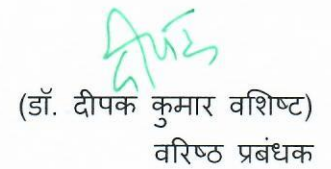 दीपक
(डॉ. दीपक कुमार वशिष्ट)
वरिष्ठ प्रबंधक